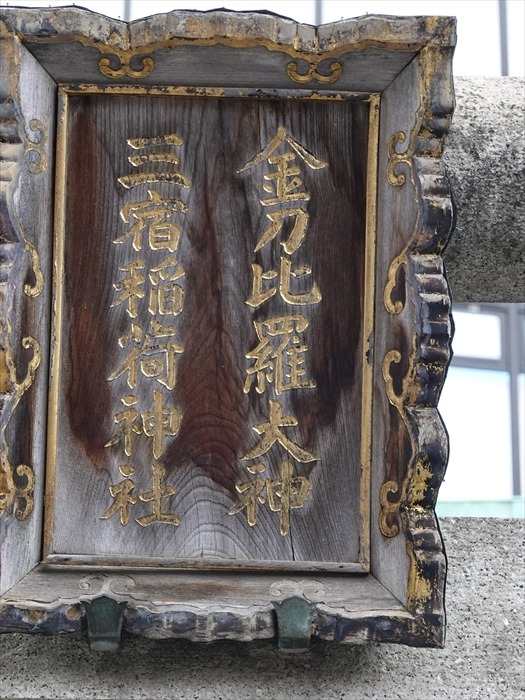 金刀比羅大神
三宿稲荷神社